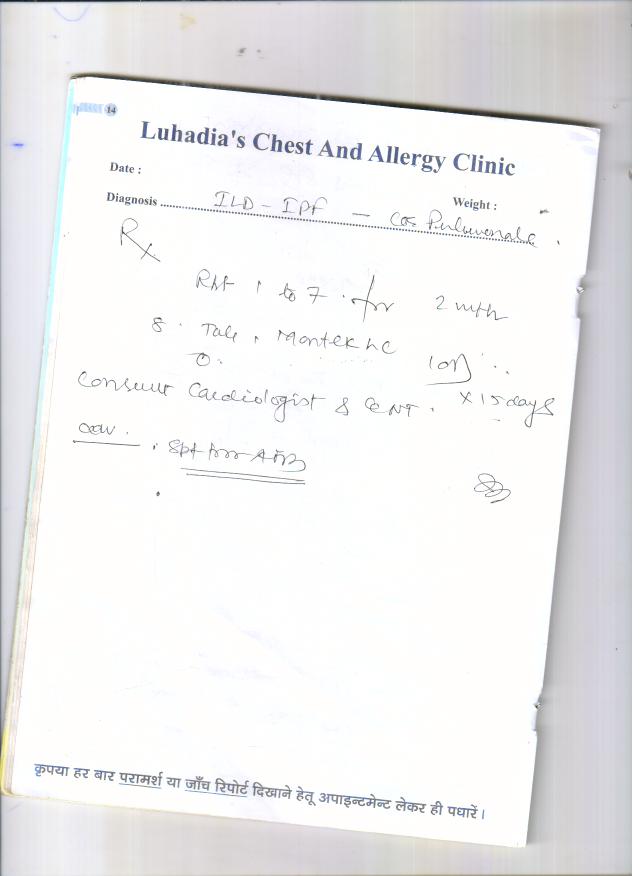 14
Luhadia's Chest And Allergy Clinic
Date :
Weight :
Diagnosis ILD - IPF - Cor Pulmonale
Rx
1 to 7 . for 2 mth
8 . Tab . Montek LC
1 on
x 15 days
Consult Cardiologist & ENT .
कृपया हर बार परामर्श या जाँच रिपोर्ट दिखाने हेतू अपाइन्टमेन्ट लेकर ही पधारें।